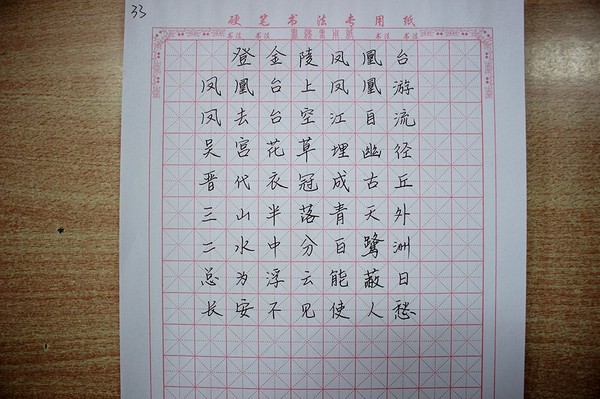 33
硬笔书法专用纸
书法 书法 书法 书法
登金陵凤凰台
凤凰台上凤凰游
凤去台空江自流
吴宫花草埋幽径
晋代衣冠成古丘
三山半落青天外
二水中分白鹭洲
总为浮云能蔽日
长安不见使人愁